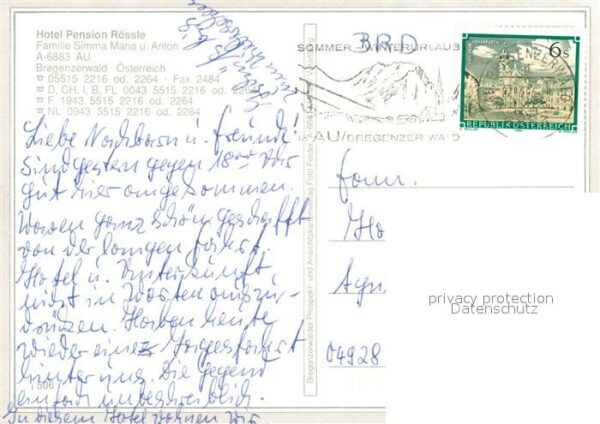 Hotel Pension Rössle
Familie Simma Maria u. Anton
A-6883 AU
Bregenzerwald · Österreich
☎ 05515 2216 od. 2264 · Fax 2484
☎ D, CH, I, B, FL 0043 5515 2216 od. 2264
☎ F 1943 5515 2216 od. 2264
☎ NL 0943 5515 2216 od. 2264
Liebe Nachbarn u. Freunde!
Sind gestern gegen 18 00 Uhr
gut hier angekommen.
Waren ganz schön geschafft
von der langen Fahrt.
Hotel u. Unterkunft
nicht in Worten auszu-
drücken. Haben heute
wieder eine Tagesfahrt
hinter uns. Die Gegend
einfach unbeschreiblich.
In diesem Hotel wohnen wir.
506
Bregenzerwälder Prospekt- und Ansichtskartenverlag Foto Felder
BRD
SOMMER WINTERURLAUB
AU/BREGENZERWALD
6 S
REPUBLIK ÖSTERREICH
Fam.
04928
privacy protection
Datenschutz